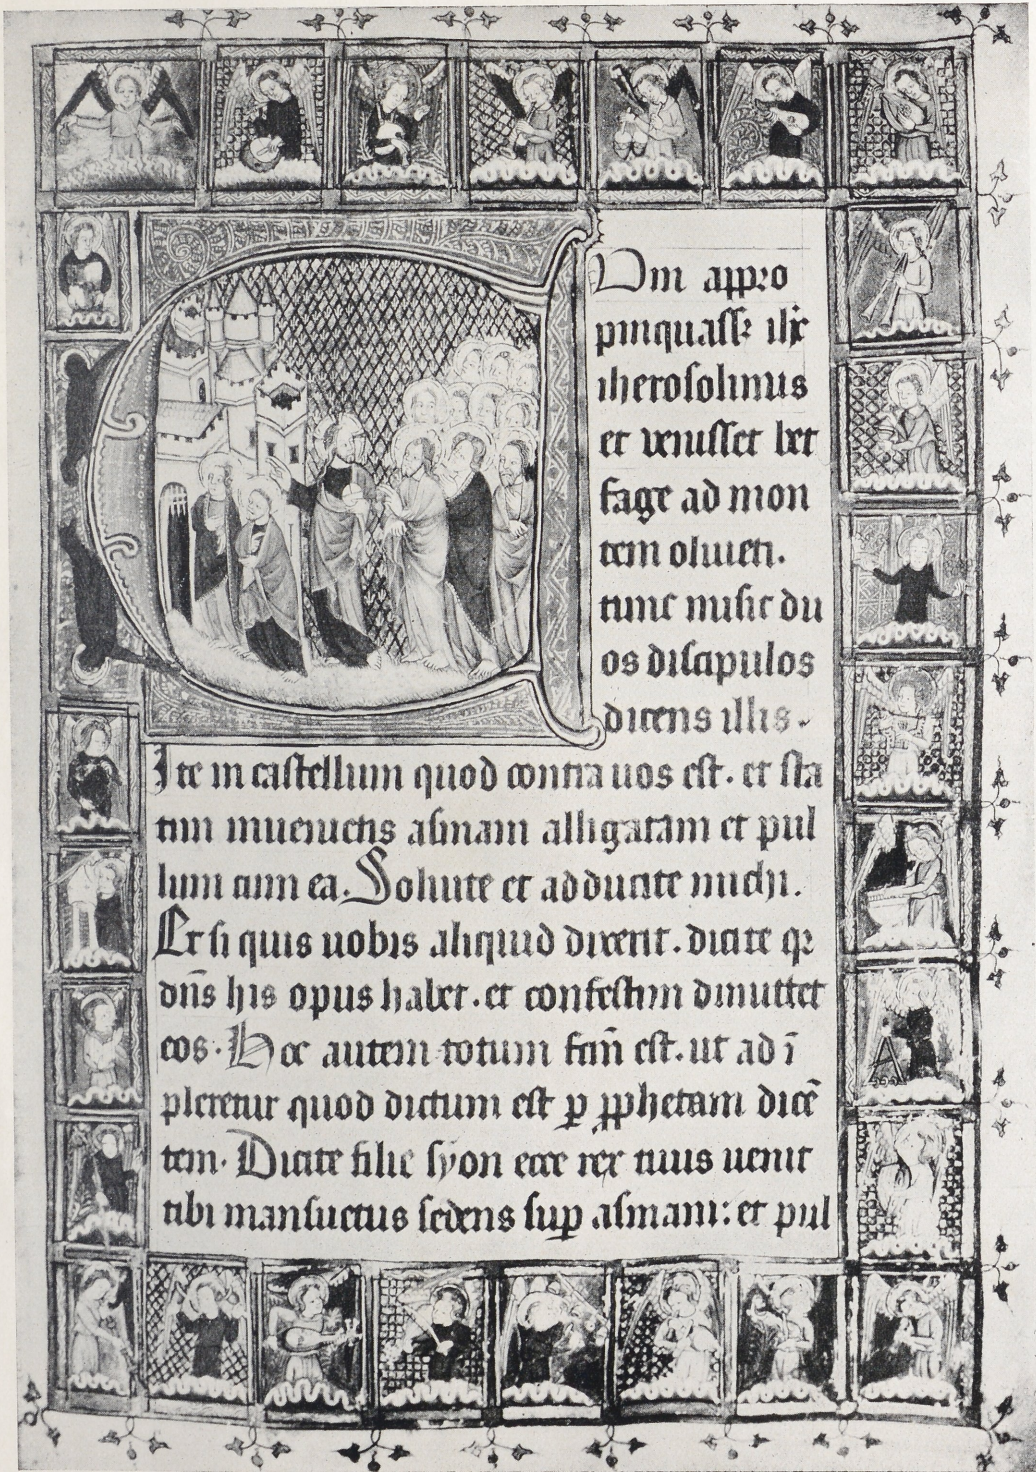 Cum appro
pinquass; ih̄c
iherosolimis
et venisset bet
fage ad mon
tem oliueti.
tunc misit du
os discipulos
dicens illis.
Ite in castellum quod contra uos est. et sta
tim inuenietis asinam alligatam et pul
lum cum ea. Soluite et adducite michi.
Et si quis uobis aliquid dixerit. dicite qꝛ
dn̄s his opus habet. et confestim dimittet
eos. Hoc autem totum fcm̄ est. ut ad ī
pleretur quod dictum est ꝑ ꝓphetam dicē
tem. Dicite filie syon ecce rex tuus uenit
tibi mansuetus sedens suꝑ asinam: et pul